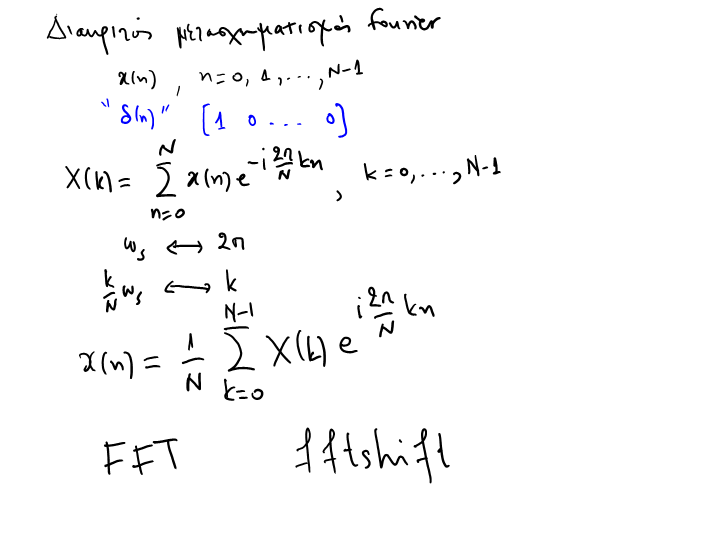 Διακριτός μετασχηματισμός fourier
x(n), n=0, 1, ..., N-1
"δ(n)" [1 0 ... 0]
X(k) = \sum_{n=0}^{N} x(n) e^{-i \frac{2π}{N} kn}, k=0, ..., N-1
ω_s ↔ 2π
\frac{k}{N} ω_s ↔ k
x(n) = \frac{1}{N} \sum_{k=0}^{N-1} X(k) e^{i \frac{2π}{N} kn}
FFT fftshift